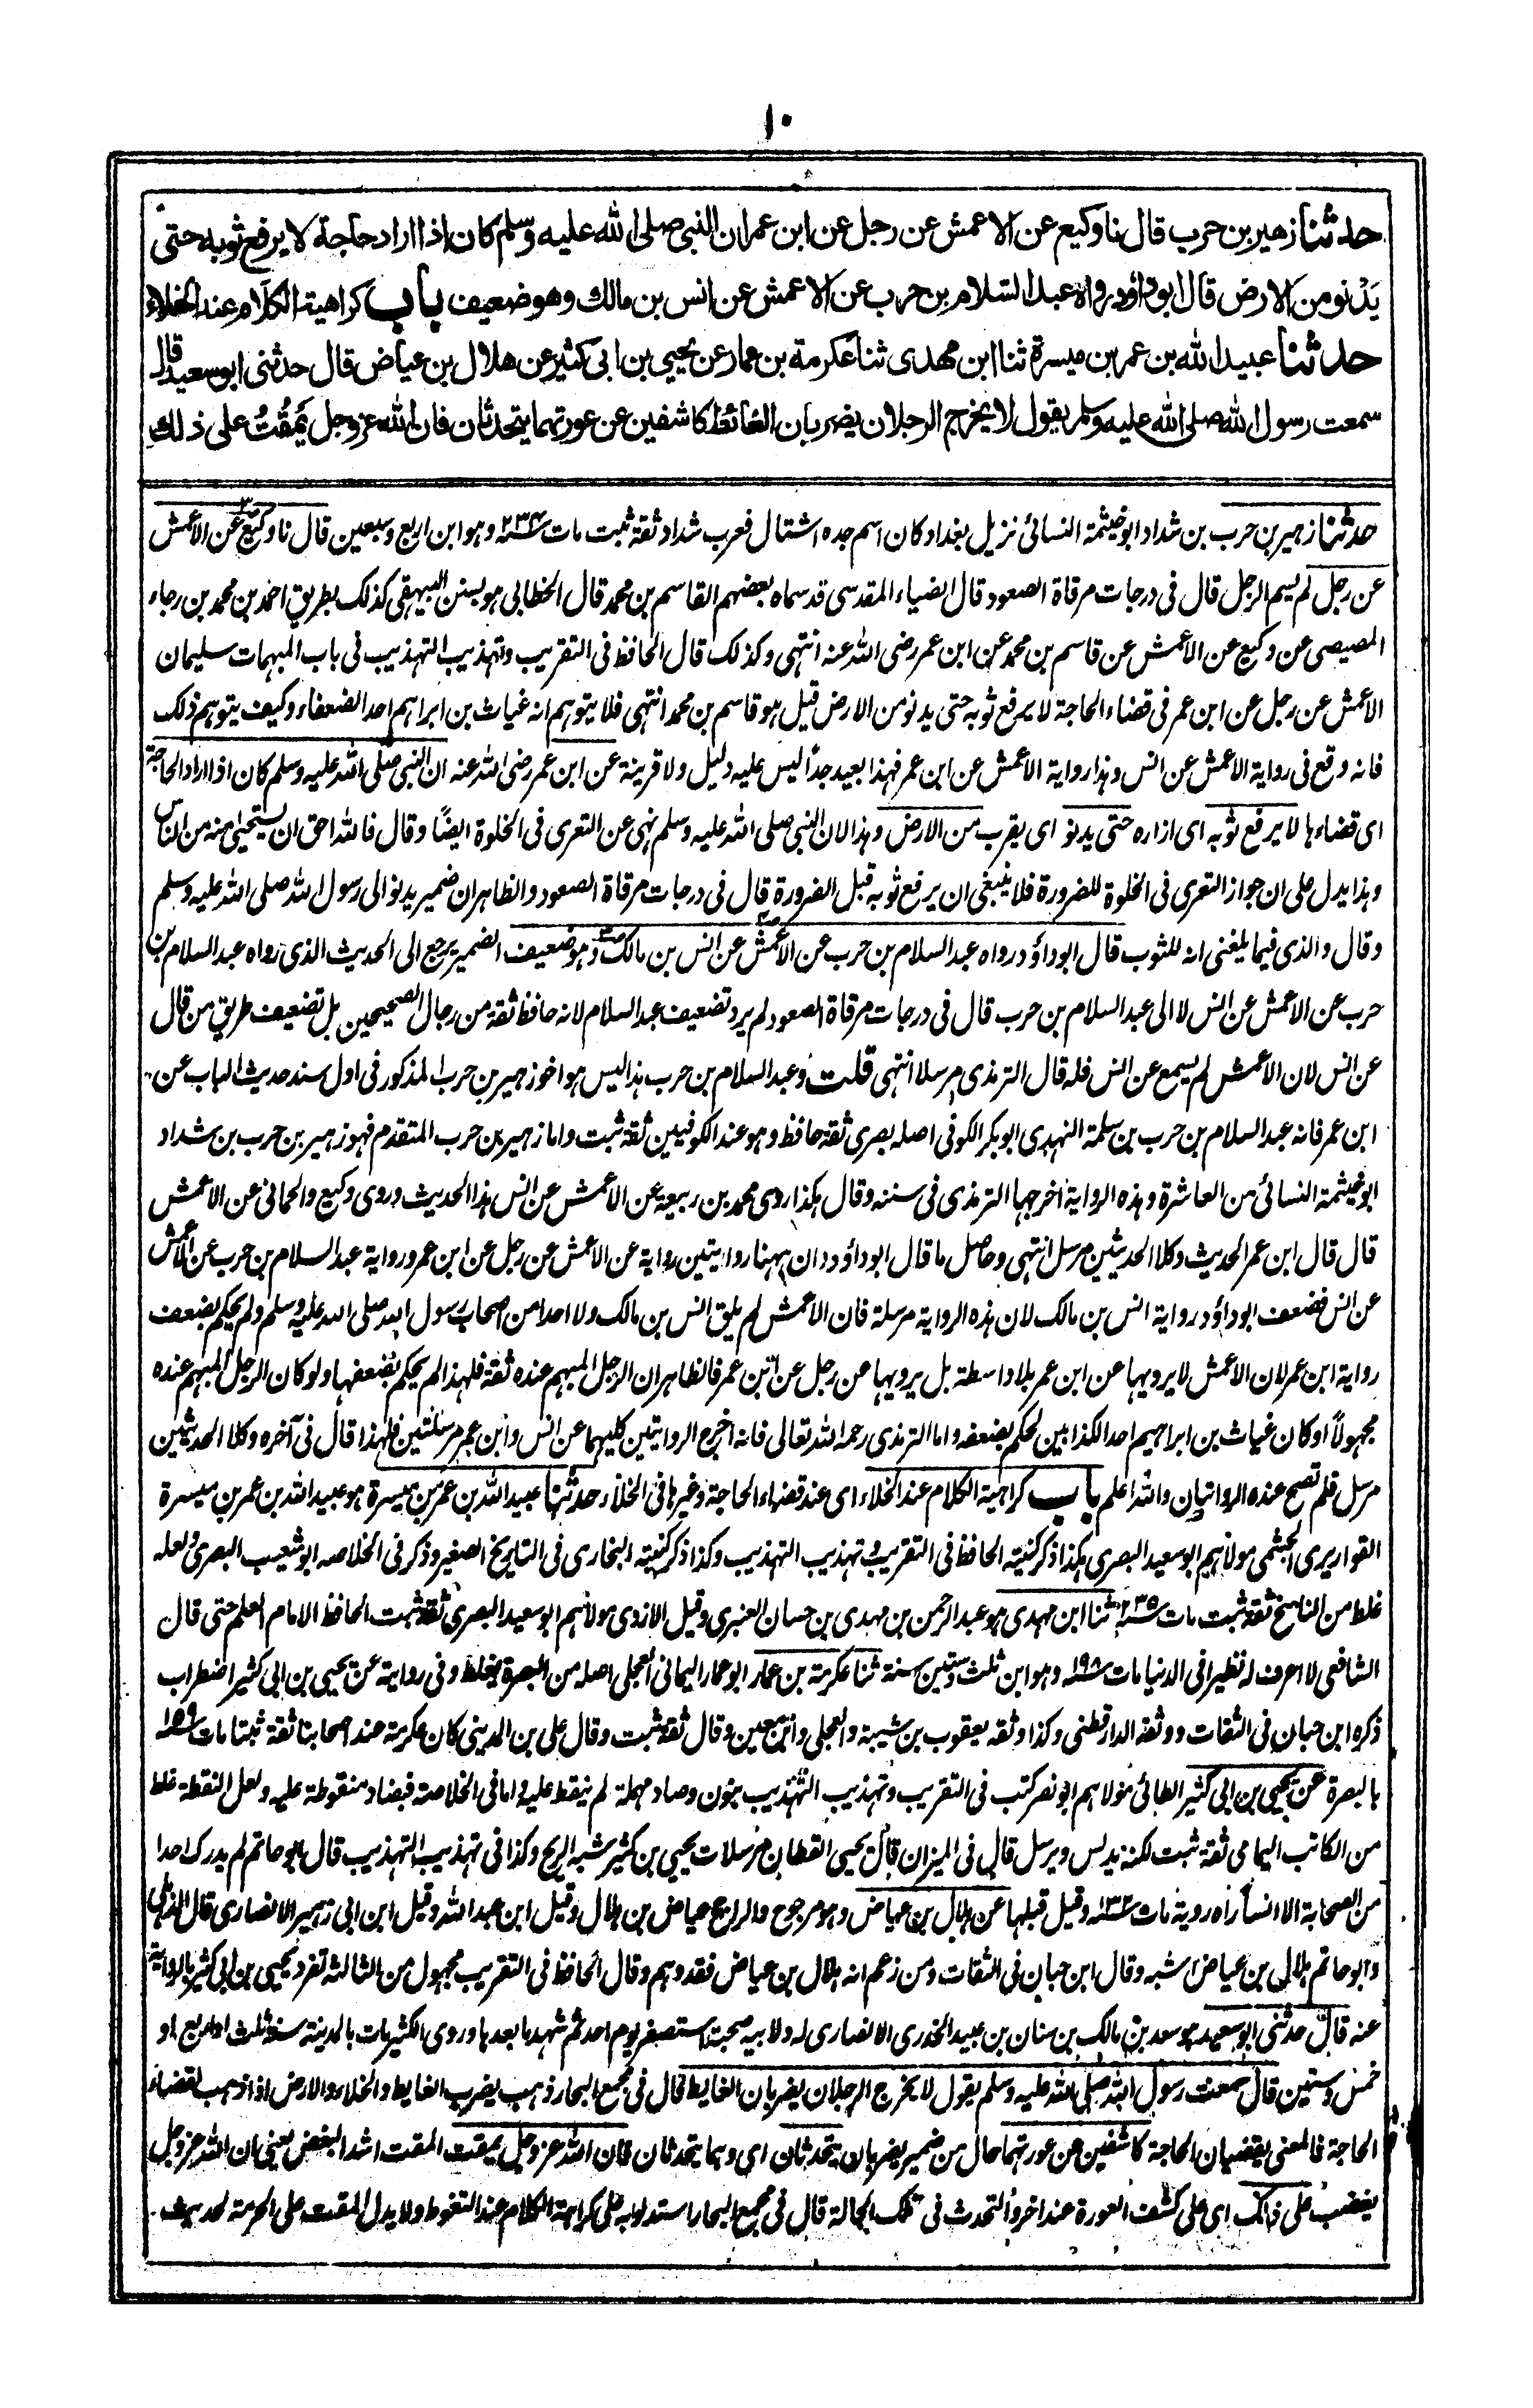 ١٠
حدثنا زهير بن حرب قال نا وكيع عن الاعمش عن رجل عن ابن عمر ان النبي صلى الله عليه وسلم كان اذا اراد حاجة لا يرفع ثوبه حتى
يَدْنو من الارض قال ابو داؤد رواه عبد السلام بن حرب عن الاعمش عن انس بن مالك وهو ضعيف باب كراهية الكلام عند الخلاء
حدثنا عبيد الله بن عمر بن ميسرة ثنا ابن مهدى ثنا عكرمة بن عمار عن يحيي بن ابى كثير عن هلال بن عياض قال حدثنى ابو سعيد قال
سمعت رسول الله صلى الله عليه وسلم يقول لا يخرج الرجلان يضربان الغائط كاشفين عن عورتهما يتحدثان فان الله عز وجل يَمْقُتُ على ذلك
حدثنا زهير بن حرب بن شداد ابو خيثمة النسائى نزيل بغداد كان اسم جده اشتال فعرب شداد ثقة ثبت مات سنة ٢٣٤ وهو ابن اربع وسبعين قال نا وكيع عن الأعمش
عن رجل لم يسم الرجل قال فى درجات مرقاة الصعود قال الضياء المقدسى قد سماه بعضهم القاسم بن محمد قال الخطابى هو بسنن البيهقى كذلك بطريق احمد بن محمد بن رجاء
المصيصى عن وكيع عن الاعمش عن قاسم بن محمد عن ابن عمر رضى الله عنه انتهى وكذلك قال الحافظ فى التقريب وتهذيب التهذيب فى باب المبهمات سليمان
الاعمش عن رجل عن ابن عمر فى قضاء الحاجة لا يرفع ثوبه حتى يدنو من الارض قيل هو قاسم بن محمد انتهى فلا يتوهم انه غياث بن ابراهيم احد الضعفاء وكيف يتوهم ذلك
فانه وقع فى رواية الاعمش عن انس وهذا رواية الاعمش عن ابن عمر فهذا بعيد جدا ليس عليه دليل ولا قرينة عن ابن عمر رضى الله عنه ان النبى صلى الله عليه وسلم كان اذا اراد الحاجة
اى قضاءها لا يرفع ثوبه اى ازاره حتى يدنو اى يقرب من الارض وهذا لان النبى صلى الله عليه وسلم نهى عن التعرى فى الخلوة ايضًا وقال فالله احق ان يستحيىٰ منه من الناس
وهذا يدل على ان جواز التعرى فى الخلوة للضرورة فلا ينبغى ان يرفع ثوبه قبل الضرورة قال فى درجات مرقاة الصعود والظاهر ان ضمير يدنو الى رسول الله صلى الله عليه وسلم
وقال والذى فيما بلغنى انه للثوب قال ابو داؤد رواه عبد السلام بن حرب عن الأعمش عن انس بن مالك وهو ضعيف الضمير يرجع الى الحديث الذى رواه عبد السلام بن
حرب عن الاعمش عن انس لا الى عبد السلام بن حرب قال فى درجات مرقاة الصعود لم يرد تضعيف عبد السلام لانه حافظ ثقة من رجال الصحيحين بل تضعيف طريق من قال
عن انس لان الاعمش لم يسمع عن انس فله قال الترمذى مرسلا انتهى قلت وعبد السلام بن حرب هذا ليس هو اخو زهير بن حرب المذكور فى اول سند حديث الباب عن
ابن عمر فانه عبد السلام بن حرب بن سلمة النهدى ابو بكر الكوفى اصله بصرى ثقة حافظ وهو عند الكوفيين ثقة ثبت واما زهير بن حرب المتقدم فهو زهير بن حرب بن شداد
ابو خيثمة النسائى من العاشرة وهذه الرواية اخرجها الترمذى فى سننه وقال هكذا روى محمد بن ربيعة عن الاعمش عن انس هذا الحديث وروى وكيع والحمانى عن الاعمش
قال قال ابن عمر الحديث وكلا الحديثين مرسل انتهى وحاصل ما قال ابو داؤد ان ههنا روايتين رواية عن الاعمش عن رجل عن ابن عمر ورواية عبد السلام بن حرب عن الأعمش
عن انس فضعف ابو داؤد رواية انس بن مالك لان هذه الرواية مرسلة فان الاعمش لم يلق انس بن مالك ولا احدا من اصحاب رسول الله صلى الله عليه وسلم ولم يحكم بضعف
رواية ابن عمر لان الاعمش لا يرويها عن ابن عمر بلا واسطة بل يرويها عن رجل عن ابن عمر فالظاهر ان الرجل المبهم عنده ثقة فلهذا لم يحكم بضعفها ولو كان الرجل المبهم عنده
مجهولاً او كان غياث بن ابراهيم احد الكذابين لحكم بضعفه واما الترمذى رحمه الله تعالى فانه اخرج الروايتين كليهما عن انس وابن عمر مرسلتين فلهذا قال فى آخره وكلا الحديثين
مرسل فلم تصح عنده الروايتان والله اعلم باب كراهية الكلام عند الخلاء اى عند قضاء الحاجة وغيرها فى الخلاء حدثنا عبيد الله بن عمر بن ميسرة هو عبيد الله بن عمر بن ميسرة
القواريرى الجشمى مولاهم ابو سعيد البصرى هكذا ذكر كنيته الحافظ فى التقريب وتهذيب التهذيب وكذا ذكر كنيته البخارى فى التاريخ الصغير وذكر فى الخلاصه ابو شعيب البصرى ولعله
غلط من الناسخ ثقة ثبت مات سنة ٢٣٥ ثنا ابن مهدى هو عبد الرحمن بن مهدى بن حسان العنبرى وقيل الازدى مولاهم ابو سعيد البصرى ثقة ثبت الحافظ الامام العلم حتى قال
الشافعى لا اعرف له نظيرا فى الدنيا مات سنة ١٩٨ وهو ابن ثلث وستين سنة ثنا عكرمة بن عمار ابو عمار اليمانى العجلى اصله من البصرة يغلط وفى روايته عن يحيى بن ابى كثير اضطراب
ذكره ابن حبان فى الثقات ووثقه الدارقطنى وكذا وثقه يعقوب بن شيبة والعجلى وابن معين وقال ثقة ثبت وقال على بن المدينى كان عكرمة عند اصحابنا ثقة ثبتا مات سنة ١٥٩
بالبصرة عن يحيى بن ابى كثير الطائى مولاهم ابو نصر كتب فى التقريب وتهذيب التهذيب بنون وصاد مهملة لم ينقط عليه واما فى الخلاصة فبضاد منقوطة عليه ولعل النقطة غلط
من الكاتب اليمامى ثقة ثبت لكنه يدلس ويرسل قال فى الميزان قال يحيى القطان مرسلات يحيى بن كثير شبه الريح وكذا فى تهذيب التهذيب قال ابو حاتم لم يدرك احدا
من الصحابة الا انسا رأه روية مات سنة ١٣٢ وقيل قبلها عن هلال بن عياض وهو مرجوح والراجح عياض بن هلال وقيل ابن عبد الله وقيل ابن ابى زهير الانصارى قال الذهلى
وابو حاتم هلال بن عياض اشبه وقال ابن حبان فى الثقات ومن زعم انه هلال بن عياض فقد وهم وقال الحافظ فى التقريب مجهول من الثالثه تفرد يحيى بن ابى كثير بالرواية
عنه قال حدثنى ابو سعيد هو سعد بن مالك بن سنان بن عبيد الخدرى الانصارى له ولابيه صحبة استصغر يوم احد ثم شهد ما بعدها وروى الكثير مات بالمدينة سنة ثلث او اربع او
خمس وستين قال سمعت رسول الله صلى الله عليه وسلم يقول لا يخرج الرجلان يضربان الغايط قال فى مجمع البحار ذهب يضرب الغايط والخلاء والارض اذا ذهب لقضاء
الحاجة فالمعنى يقضيان الحاجة كاشفين عن عورتهما حال من ضمير يضربان يتحدثان اى وهما يتحدثان فان الله عز وجل يمقت المقت اشد البغض يعنى ان الله عز وجل
يغضب على ذلك اى على كشف العورة عند اخر والتحدث فى تلك الحالة قال فى مجمع البحار استدلوا به على كراهة الكلام عند التغوط ولا يدل المقت على الحرمة لحديث